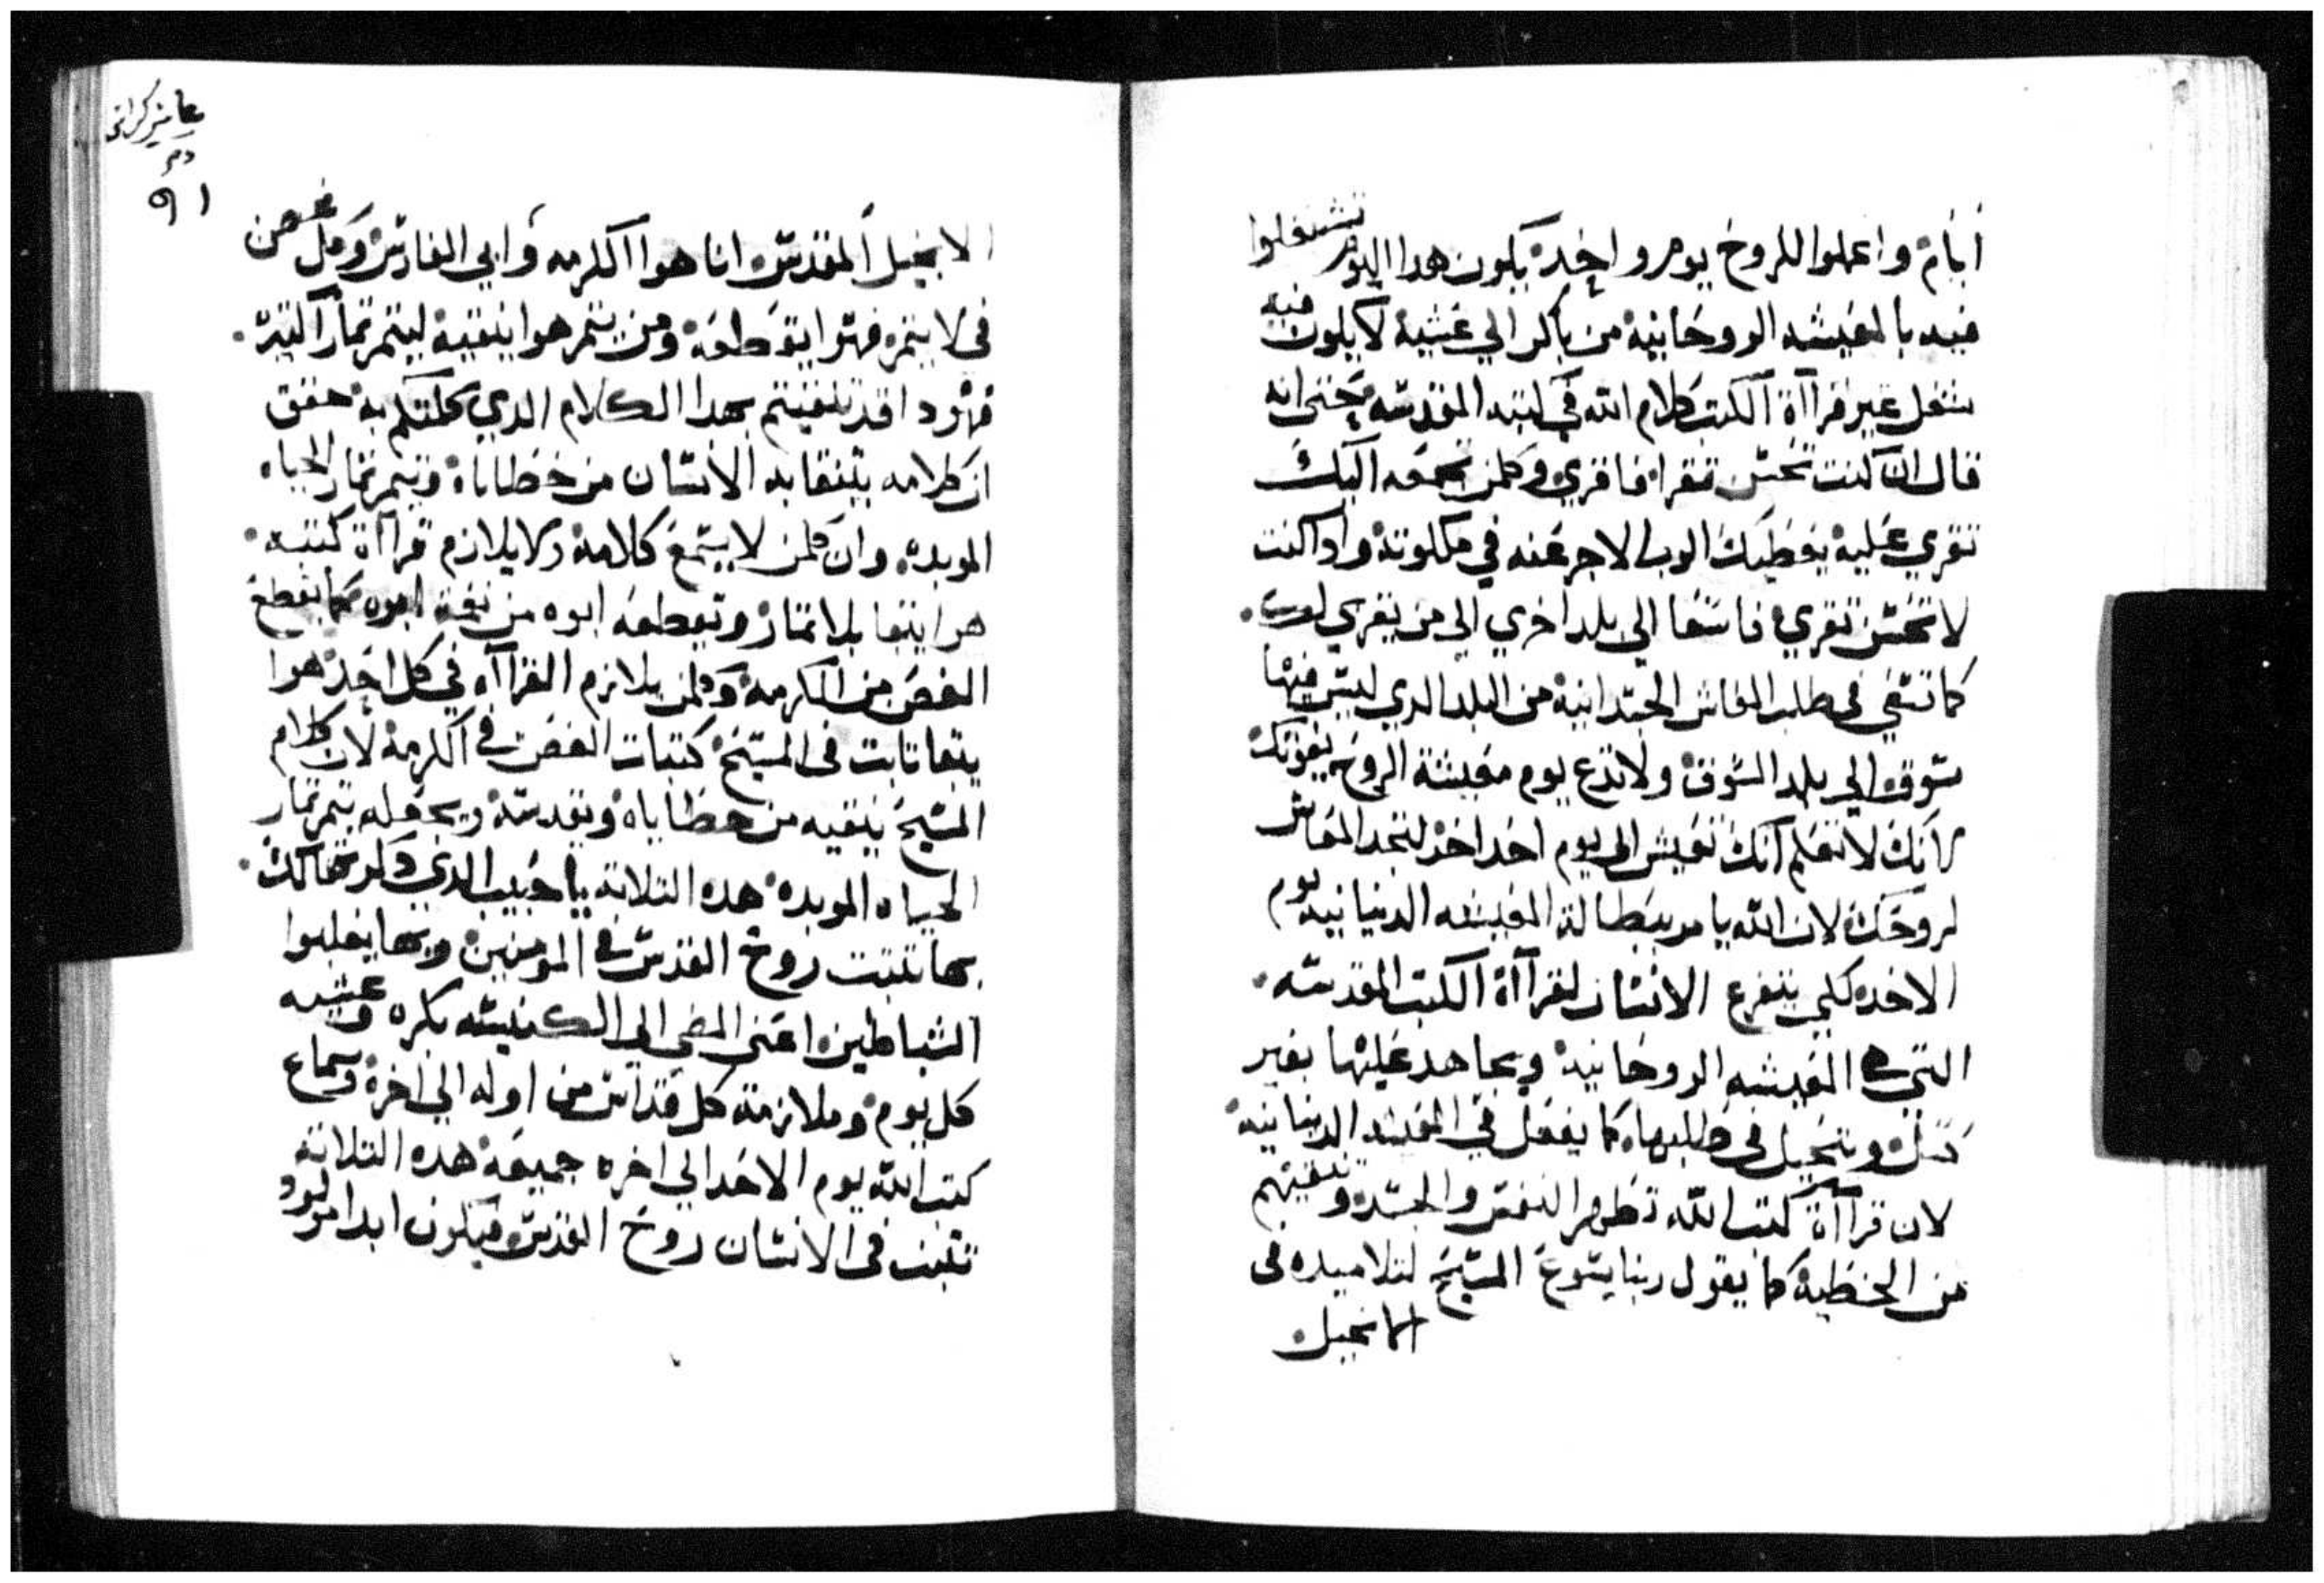 أيام واعملوا للروح يوم واحد يكون هدا اليوم تشتغلوا
فيه بالمعيشه الروحانية من باكر الي عشية لا يكون فيه
شغل غير قرااة الكتب كلام الله في كتبه المقدسه حتى انه
قال ان كنت تحسن تقرا فاقري وكلمن يجمعه اليك
تقري عليه يعطيك الرب الاجر عنه في ملكوته وادا كنت
لا تحسن تقري فاسعا الي بلد اخري الي من يقري لك
كما تسعي في طلب المعاش الجسدانية من البلد الدي ليس فيها
سوق الي بلد السوق ولا تدع يوم معيشة الروح يفوتك
لانك لا تعلم انك تعيش الي يوم احد اخر لتجد المعاش
لروحك لان الله يامر ببطالة المعيشه الدنيانيه يوم
الاحد لكي يتفرع الانسان لقرااة الكتب المقدسه
التي هي المعيشه الروحانية ويجاهد عليها بغير
كسل ويتحيل في طلبها كما يفعل في المعيشه الدنيانية
لان قرااة كتب الله تطهر النفس والجسد وتنقيهم
من الخطية كما يقول ربنا يسوع المسيح لتلاميده في
الانجيل
دم
٩١
الانجيل المقدس انا هوا الكرمه وابي الفارس وكل غصن
في لا يتمر فهوا يقطعه ومن يتمر هوا ينقية ليتمر تمار اكتير
فهودا قد تنقيتم بهدا الكلام الدي كلمتكم به حقق
ان كلامه يتنقا به الانسان من خطاياة ويتمر تمار الحياه
الموبده وان كلمن لا يستمع كلامة ولا يلازم قرااة كتبه
هوا يبقا بلا تمار ويقطعه ابوه من نعمة ابوه كما يقطع
الغصن من الكرمة وكلمن يلازم القرااه في كل احد هوا
يبقا تابت في المسيح كتبات الغصن في الكرمة لان كلام
المسيح ينقيه من خطاياة ويقدسة ويجعله يتمر تمار
الحياه الموبده هده التلاتة يا حبيب الدي دكرتها لك
بها تتبت روح القدس في المومنين وبها يغلبوا
الشياطين اعني المضي الي الكنيسه بكره وعشيه
كل يوم وملازمة كل قداس من اوله الي اخرة وسماع
كتب الله يوم الاحد الي اخره جميعة هده التلاتة
تتبت في الانسان روح القدس فيكون ابدا مولود